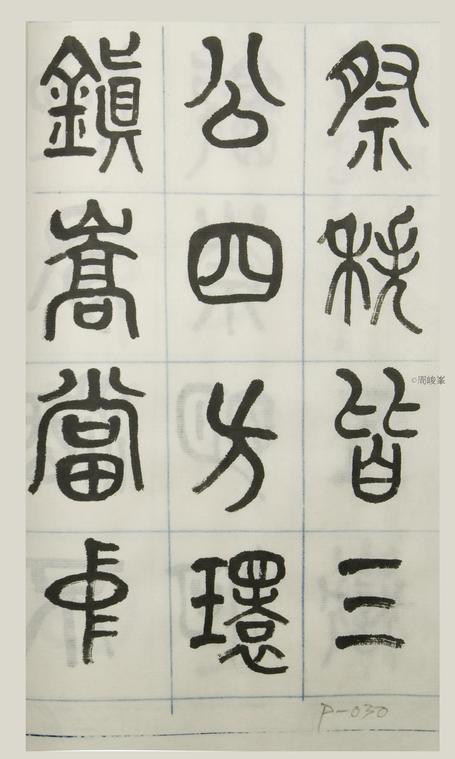 祭秩皆三
公四方環
鎮嵩當中
P-030
©周峻峯